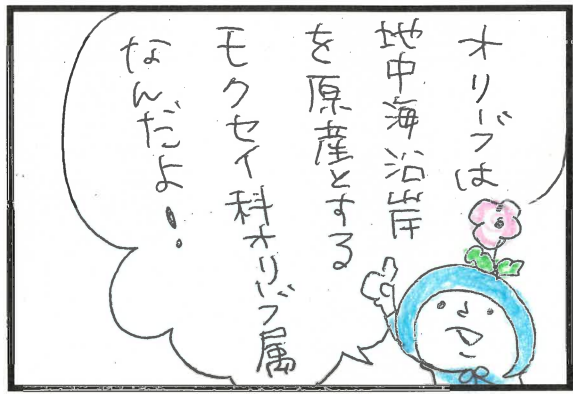 オリーブは
地中海沿岸
を原産とする
モクセイ科オリーブ属
なんだよ!